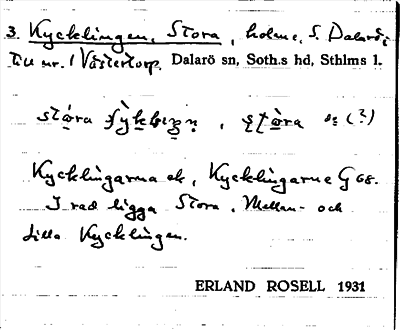 3. Kycklingen, Stora, holme, S. Dalarö,
till nr. 1 Västertorp. Dalarö sn, Soth.s hd, Sthlms l.
Kycklingarna ek, Kycklingarne G 68.
I rad ligga Stora, Mellan- och
Lilla Kycklingen.
ERLAND ROSELL 1931